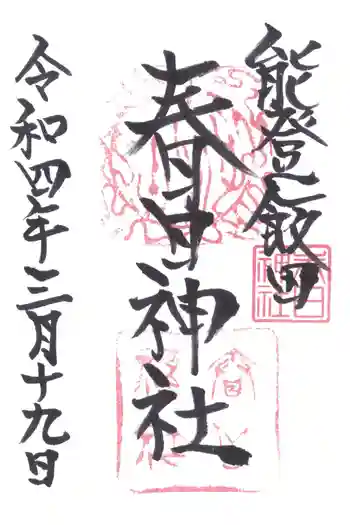 能登飯田
春日神社
令和四年三月十九日
春日
神社